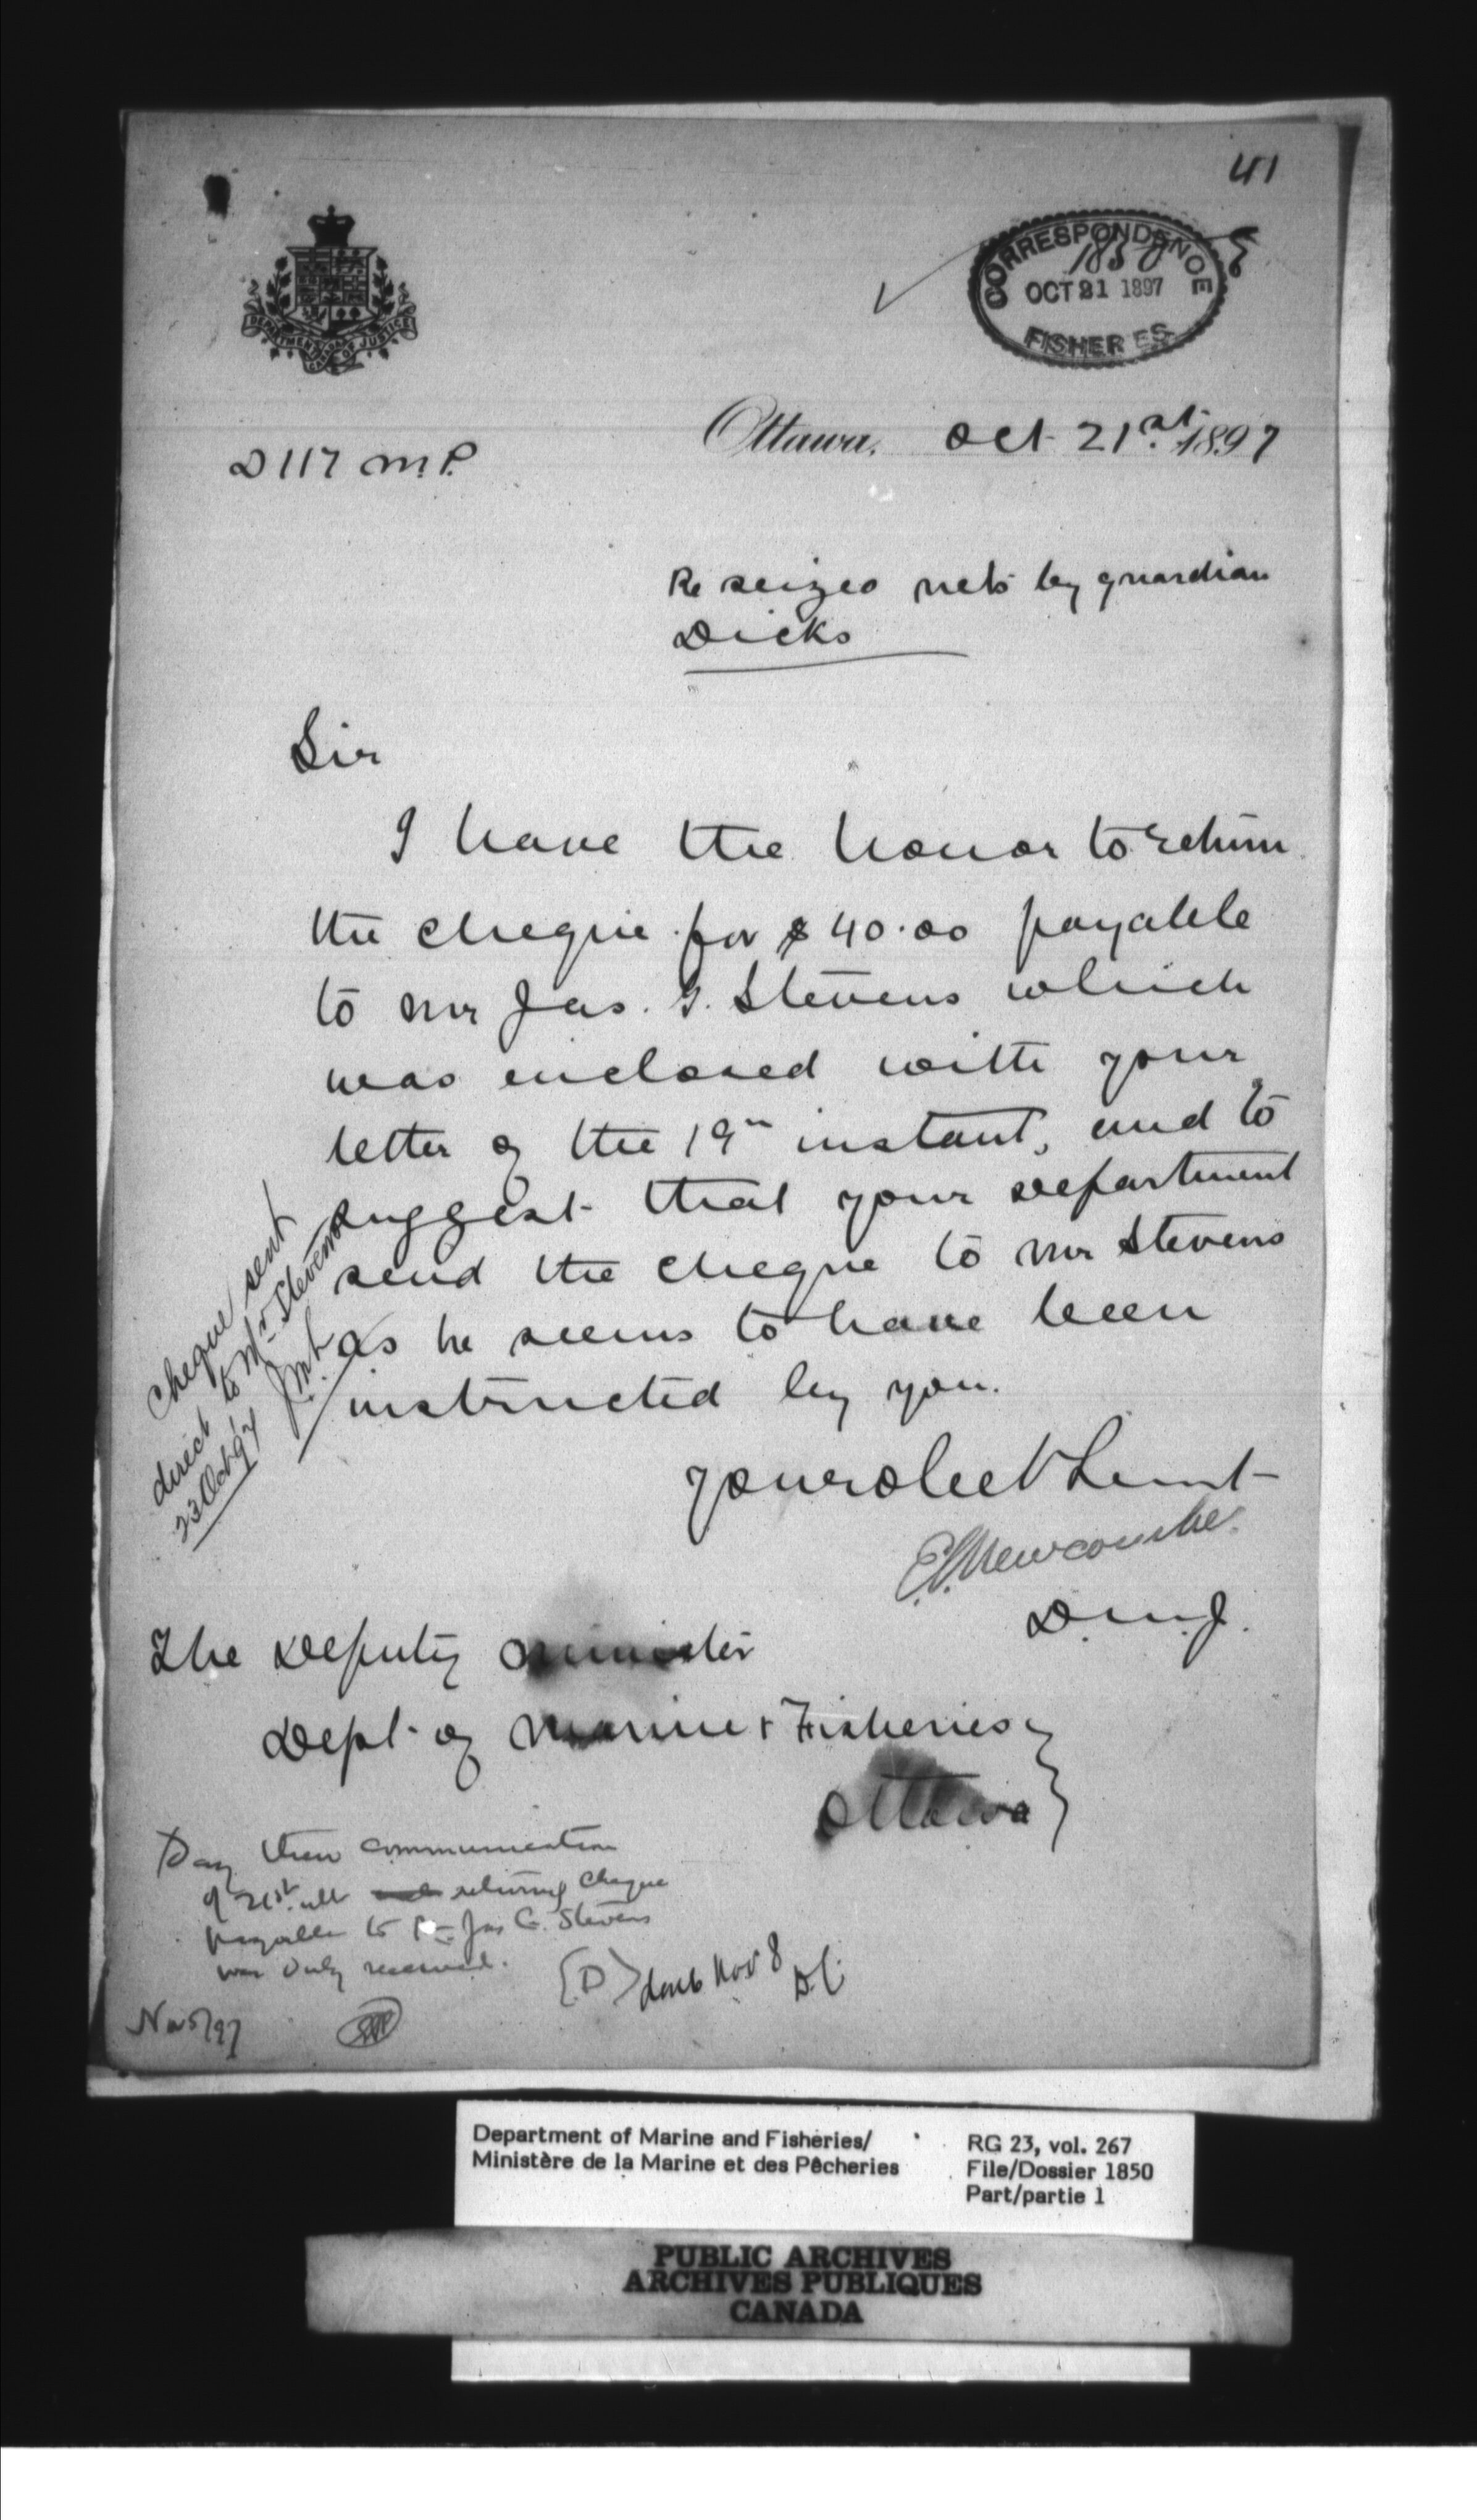 41
CORRESPONDENCE
1850
OCT 21 1897
FISHERIES
DEPARTMENT OF JUSTICE
Ottawa, Oct 21st 1897
D 117 M.P.
Re seized nets by guardian
Dicks
Sir
I have the honor to return
the cheque for $40.00 payable
to Mr Jas. G. Stevens which
was enclosed with your
letter of the 19th instant, and to
suggest that your Department
send the cheque to Mr Stevens
as he seems to have been
instructed by you.
Cheque sent
direct to Mr Stevens
23 Oct 97
Your obedt Servt
E.L. Newcombe.
D.M.J.
The Deputy Minister
Dept of Marine & Fisheries
Ottawa
Say their communication
of 21st ult returning cheque
payable to Jas G. Stevens
was duly received.
(D) Nov 8
Nov 5/97
Department of Marine and Fisheries/
Ministère de la Marine et des Pêcheries
RG 23, vol. 267
File/Dossier 1850
Part/partie 1
PUBLIC ARCHIVES
ARCHIVES PUBLIQUES
CANADA